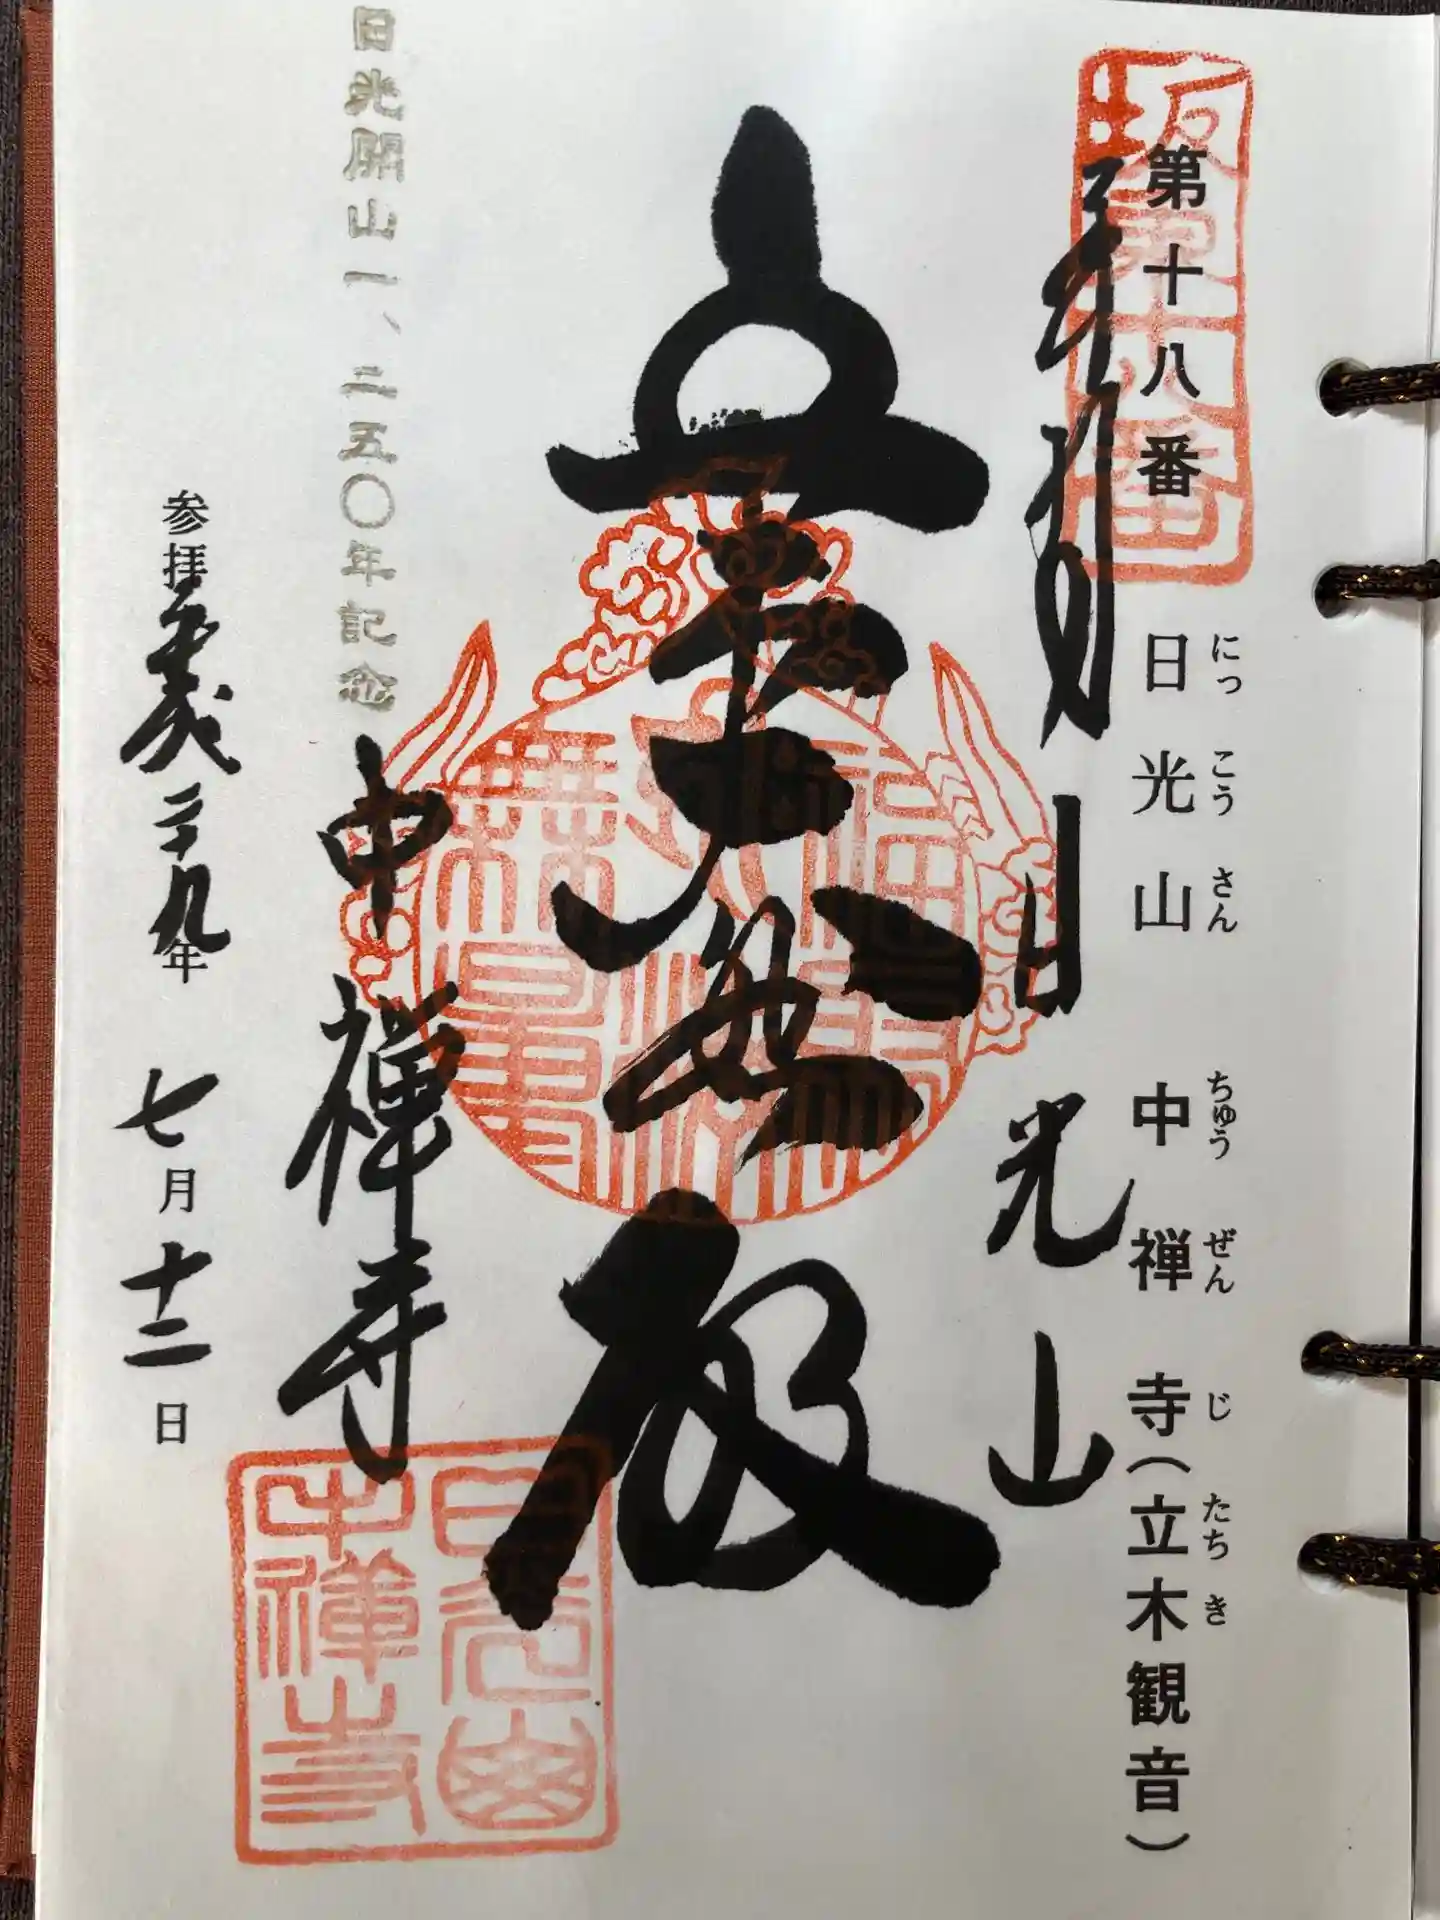 坂東十八番
第十八番 日光山 中禅寺(立木観音)
にっ こう さん ちゅう ぜん じ たち き
奉拝 日光山
大悲殿
中禅寺
日光山中禅寺
日光開山一、二五〇年記念
参拝平成二十九年 七月十二日